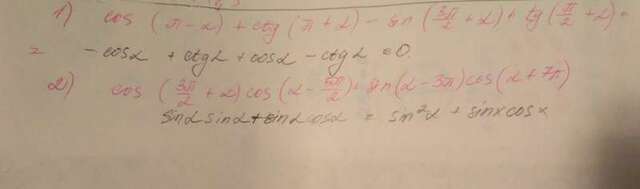 1) cos (π-α) + ctg (π+α) - sin (3π/2 + α) + tg (π/2 + α) =
= -cosα + ctgα + cosα - ctgα = 0.
2) cos (3π/2 + α) cos (α - 5π/2) + sin (α - 3π) cos (α + 7π)
sinα sinα + sinα cosα = sin²α + sinx cosx